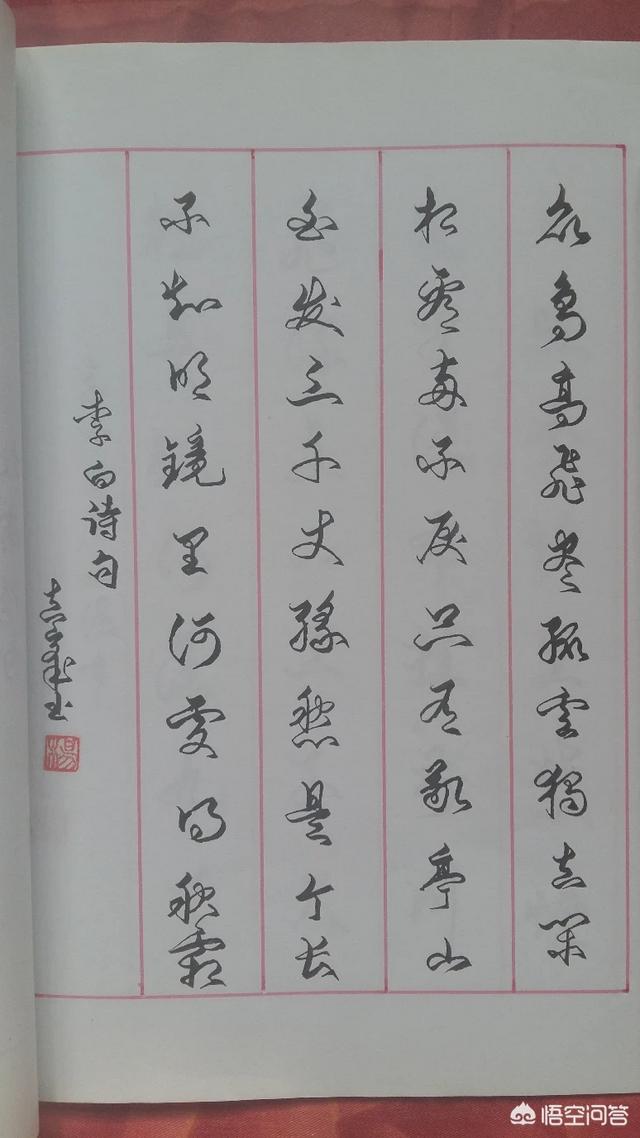 众鸟高飞尽孤云独去闲
相看两不厌只有敬亭山
白发三千丈缘愁是个长
不知明镜里何处得秋霜
李白诗句
悟空问答